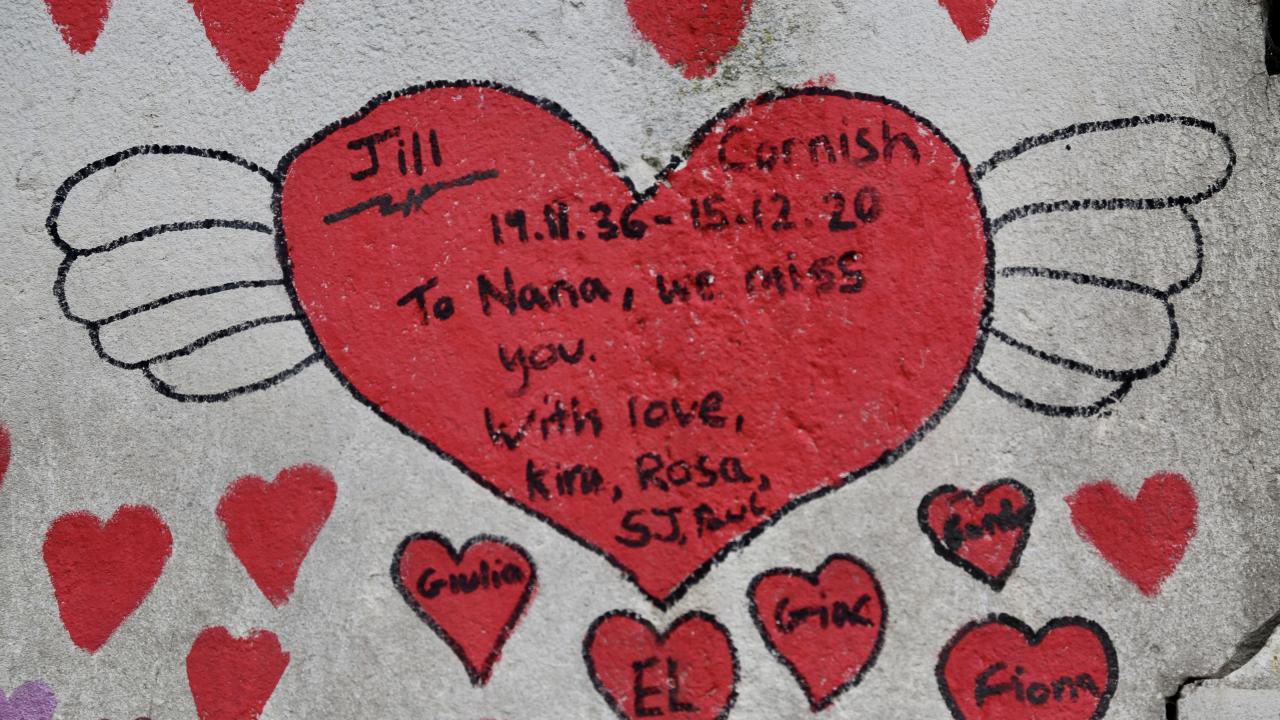 Jill Cornish
19.11.36-15.12.20
To Nana, we miss
you.
With love,
Kira, Rosa,
SJ, Paul
Giulia
EL
Giac
Fiona